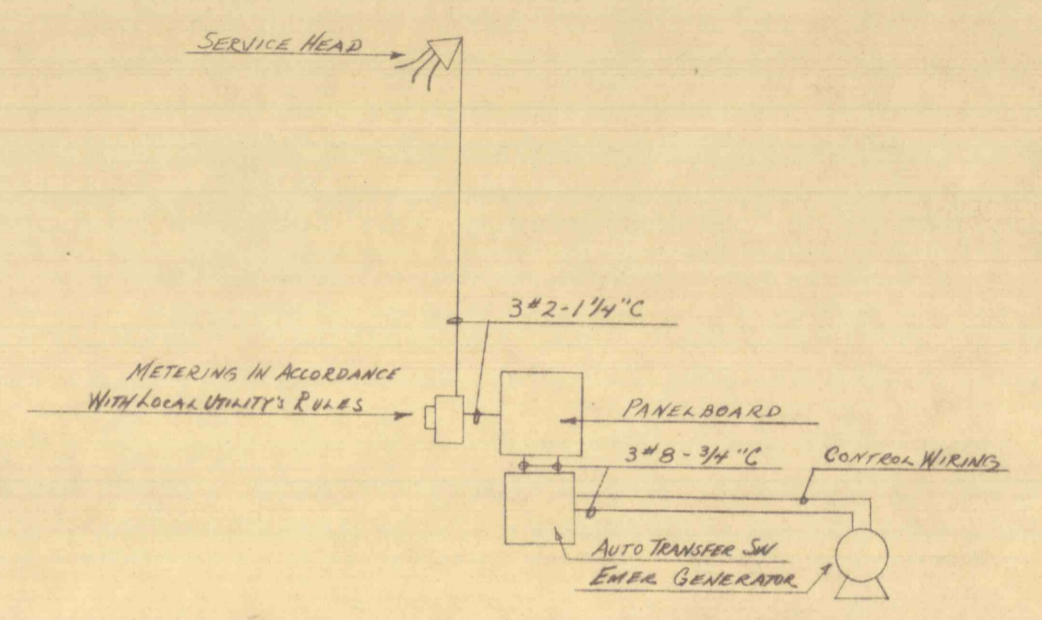 SERVICE HEAD
3#2-1 1/4"C
METERING IN ACCORDANCE
WITH LOCAL UTILITY'S RULES
PANELBOARD
3#8-3/4"C
CONTROL WIRING
AUTO TRANSFER SW
EMER GENERATOR